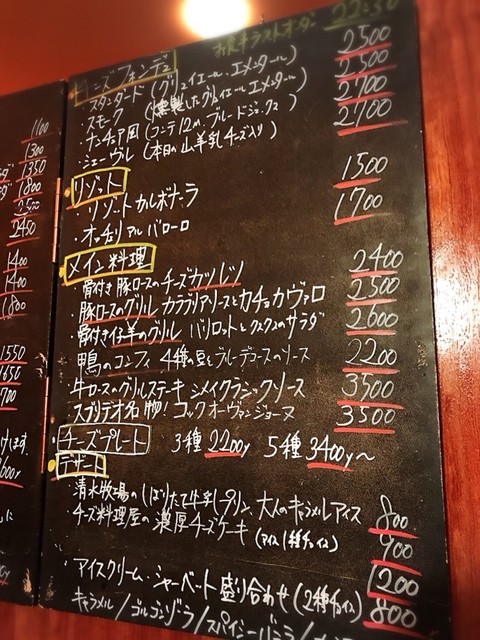 お食事ラストオーダー 22:30
チーズフォンデュ
・スタンダード(グリュイエール、エメンタール) 2500
・スモーク (燻製したグリュイエール、エメンタール) 2500
・ナンチュア風 (コンテ12ヶ月、ブルードジェックス) 2700
・シェーヴル (本日の山羊乳チーズ入り) 2700
リゾット
・リゾットカルボナーラ 1500
・オッチェリアルバローロ 1700
メイン料理
骨付き豚ロースのチーズカツレツ 2400
豚ロースのグリル カラブリアソースとカチョカヴァロ 2500
骨付き仔羊のグリル バリロットとクスクスのサラダ 2600
鴨のコンフィ 4種の豆とブルーデコースのソース 2200
牛ロースのグリルステーキ シメイクラシックソース 3500
スブリデオ名物!コックオーヴァンジョーヌ 3500
チーズプレート 3種 2200y 5種 3400y〜
デザート
清水牧場のしぼりたて牛乳プリン 大人のキャラメルアイス 800
チーズ料理屋の濃厚チーズケーキ (アイス1種チョイス) 900
1200
・アイスクリーム・シャーベート盛り合わせ(2種チョイス) 800
キャラメル/ゴルゴンゾーラ/スパイシーバニラ/
1100
1300
1350
1800
2450
1400
1400
1800
1550
1650